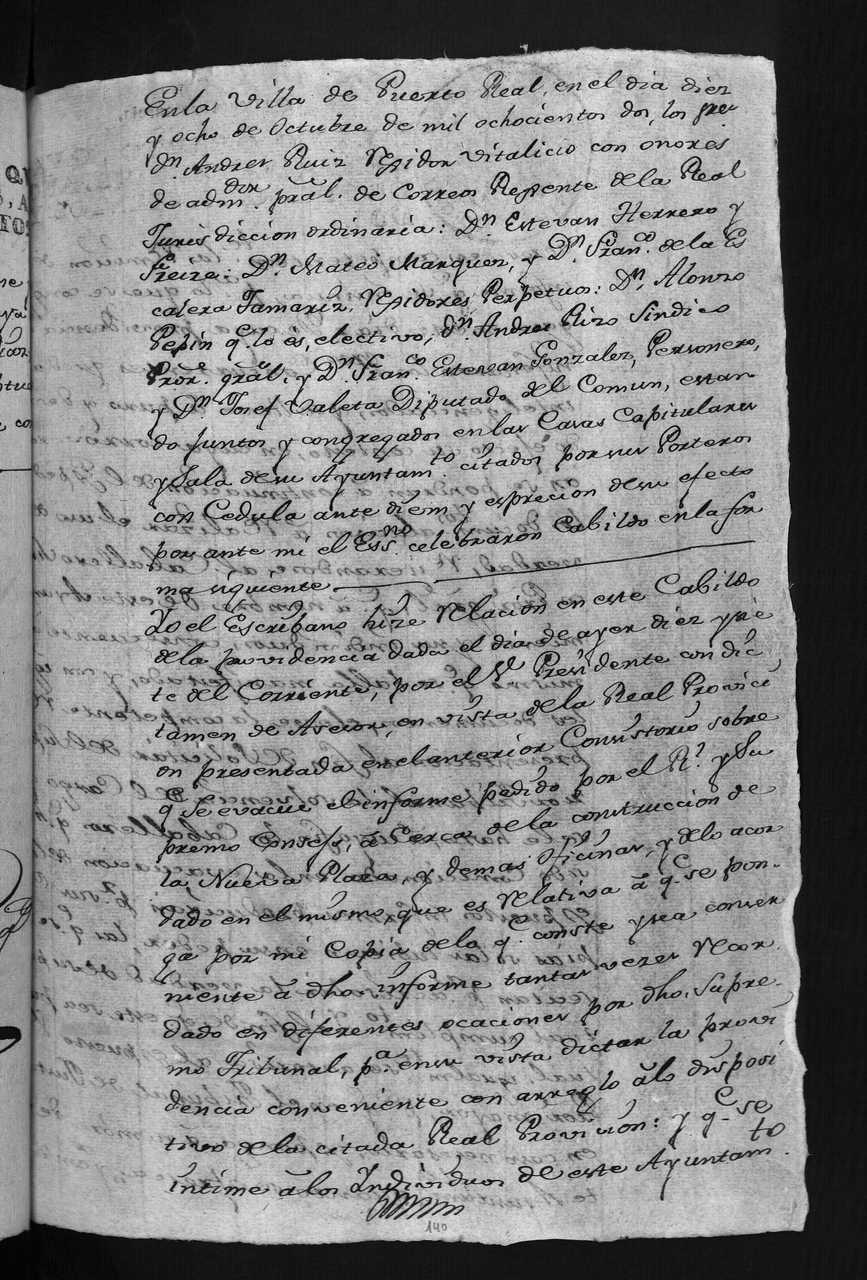 En la Villa de Puerto Real, en el dia diez
y ocho de Octubre de mil ochocientos dos, los
Dn. Andres Ruiz Rexidor Vitalicio con onores
de admdor. pral. de Correos Rexente de la Real
Jurisdiccion ordinaria: Dn. Estevan Herrero y
Freire: Dn. Mateo Marquez, y Dn. Franco. de la Es
calera Tamariz, Rexidores Perpetuos: Dn. Alonzo
Pepin q. lo es, electivo, Dn. Andres Rizo Sindico
Pror. gral. y Dn. Franco. Estevan Gonzalez, Personero,
y Dn. Josef Valeta Diputado del Comun, estan
do juntos y congregados en las Casas Capitulares
y Sala de su Ayuntamto. citados por sus Porteros
con Cedula ante diem y esprecion de su efecto
por ante mi el Essno. celebraron Cabildo en la for
ma siguiente
Yo el Escribano hize relacion en este Cabildo
de la providencia dada el dia de ayer diez y sie
te del Corriente, por el Sr. Presidente con dic
tamen de Asesor, en vista de la Real Provici
on presentada en el anterior Consistorio sobre
q. se evacue el informe pedido por el Rl. y Su
premo Consejo, a Cerca de la construccion de
la Nueva Plaza, y demas Oficinas, y de lo acor
dado en el mismo, que es relativa à q. se pon-
ga por mi Copia de la q. conste y sea conven
niente à dho. informe tantas vezes recor
dado en diferentes ocaciones por dho. Supre-
mo Tribunal, pa. en su vista dictar la provi
dencia conveniente con arreglo à lo disposi
tivo de la citada Real Provicion: y q. se
intime à los Yndividuos de este Ayuntamto.
140